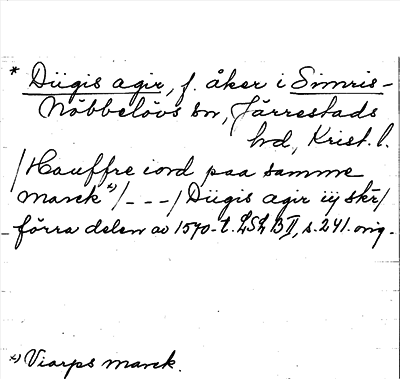 * Diigis agir, f. åker i Simris-
Nöbbelövs sn, Järrestads
hd, Krist. l.
/Hauffre iord paa samme
marck *)/ - - - / Diigis agir iij skr/
förra delen av 1570-t. LSL B II, s. 241. orig.
*) Viarps marck.